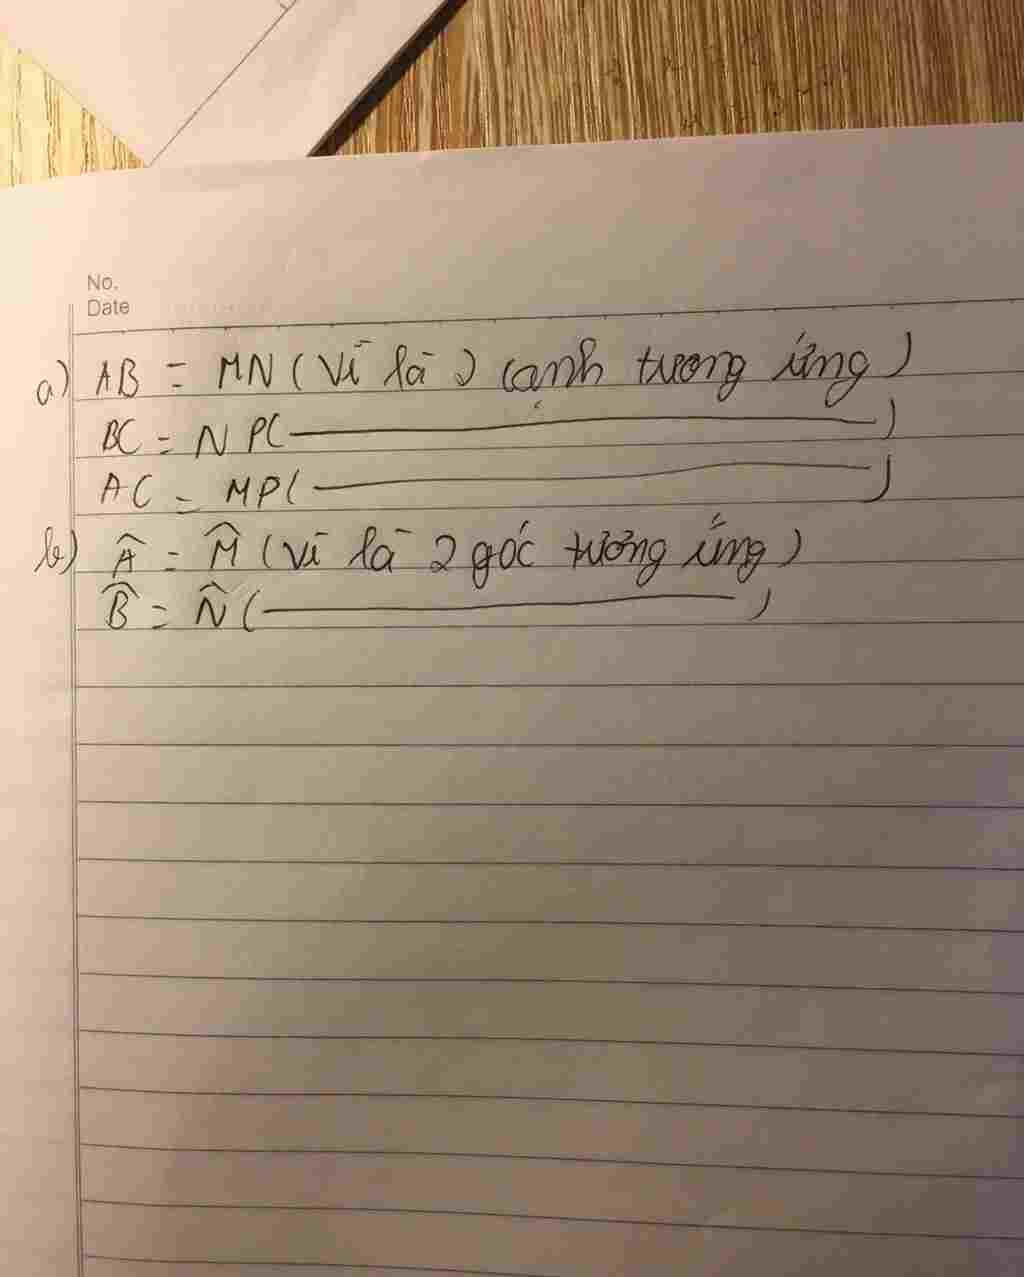 No.
Date
a) AB = MN (Vì là 2 cạnh tương ứng)
BC = NP( ——— )
AC = MP( ——— )
b) Â = M̂ (vì là 2 góc tương ứng)
B̂ = N̂ ( ——— )